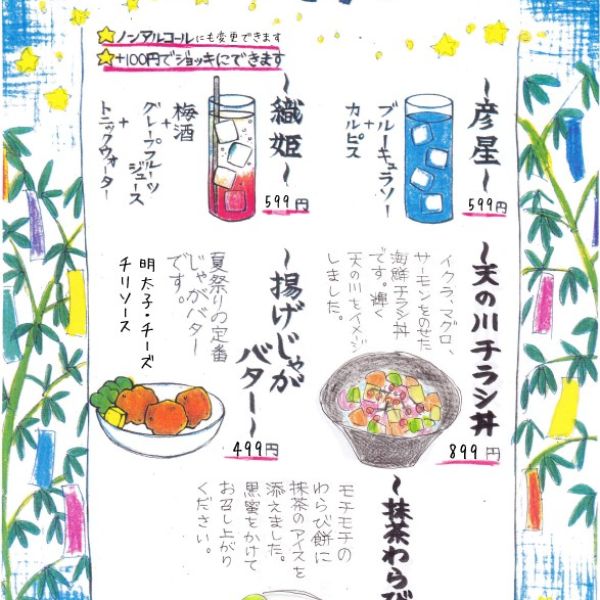 ノンアルコールにも変更できます
+100円でジョッキにできます
~彦星~
ブルーキュラソー
+
カルピス
599円
~織姫~
梅酒
+
グレープフルーツ
ジュース
+
トニックウォーター
599円
~天の川チラシ丼
イクラ、マグロ、
サーモンをのせた
海鮮チラシ丼
です。輝く
天の川をイメージ
しました。
899円
~揚げじゃが
バター~
夏祭りの定番
じゃがバター
です。
明太子・チーズ
チリソース
499円
~抹茶わらび
モチモチの
わらび餅に
抹茶のアイスを
添えました。
黒蜜をかけて
お召し上がり
ください。